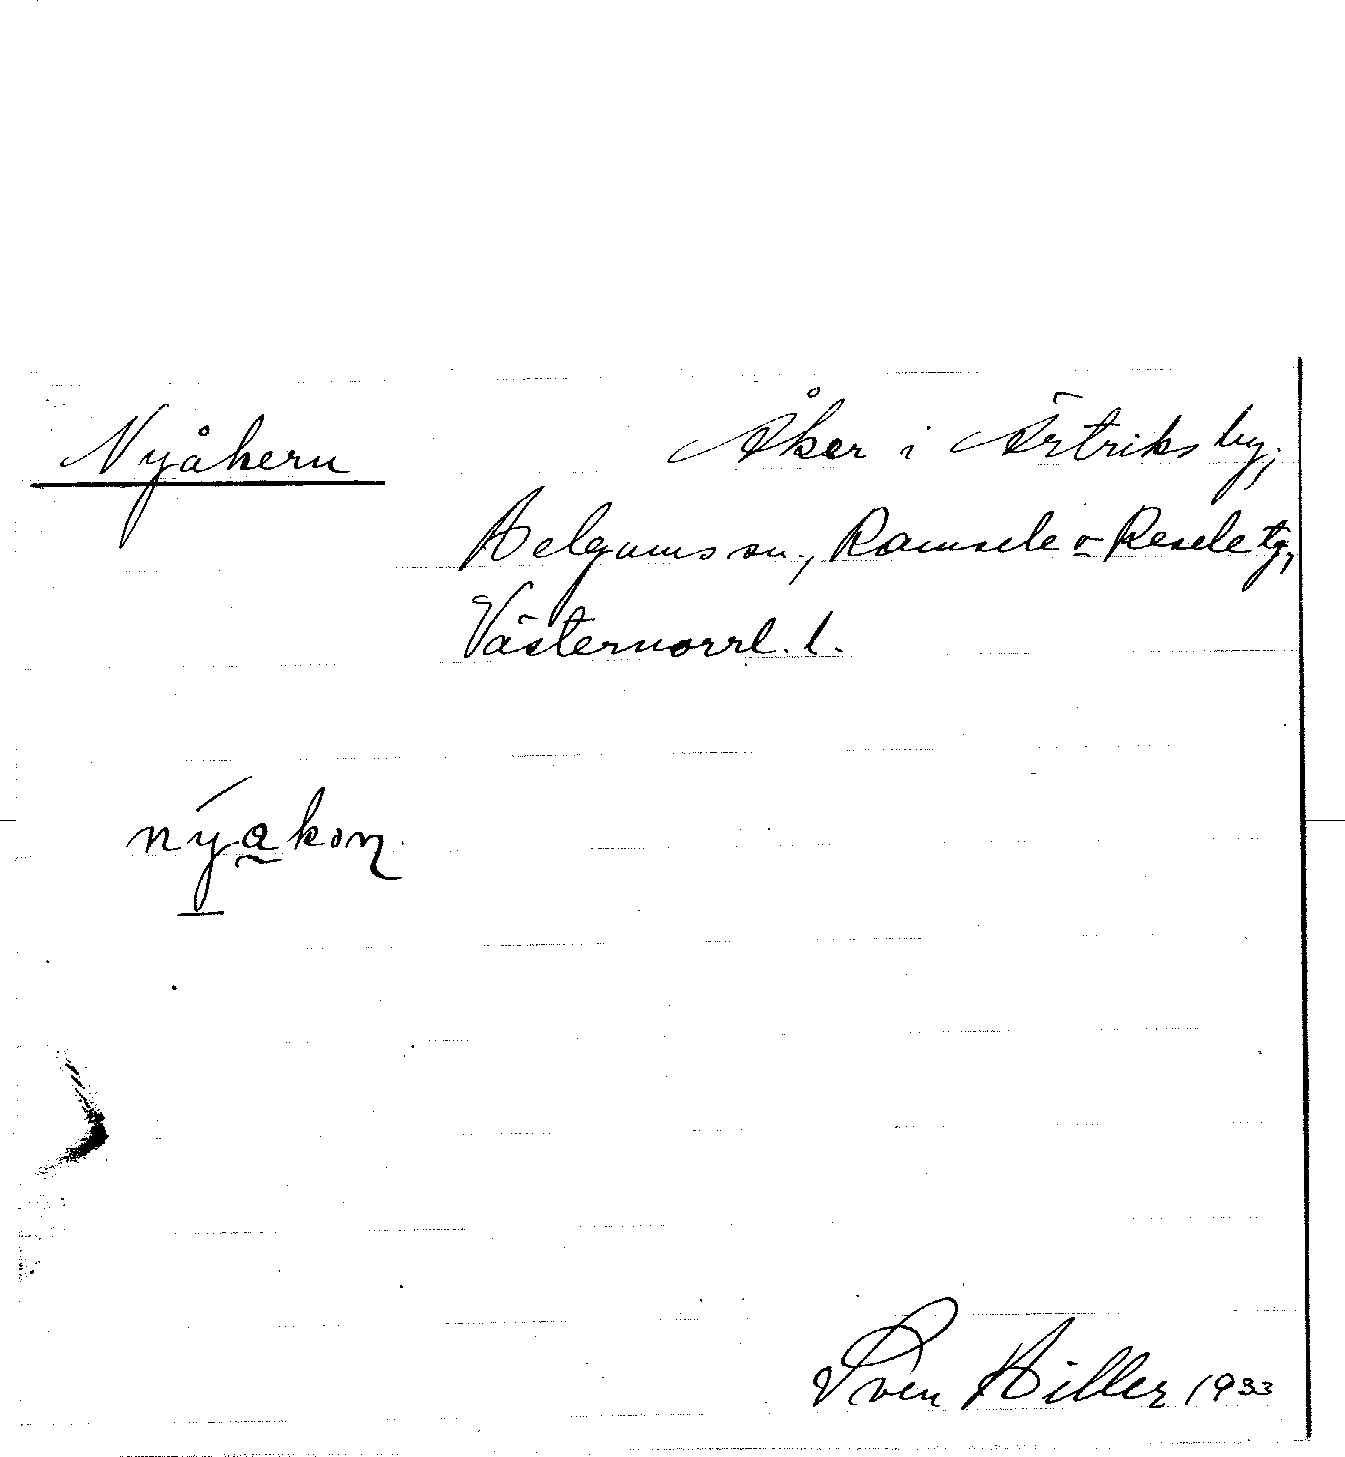 Nyåkern
Åker i Ärtriks by,
Helgums sn., Ramsele o Resele tg,
Västernorrl. l.
nýakoɳ
Sven Hiller 1933